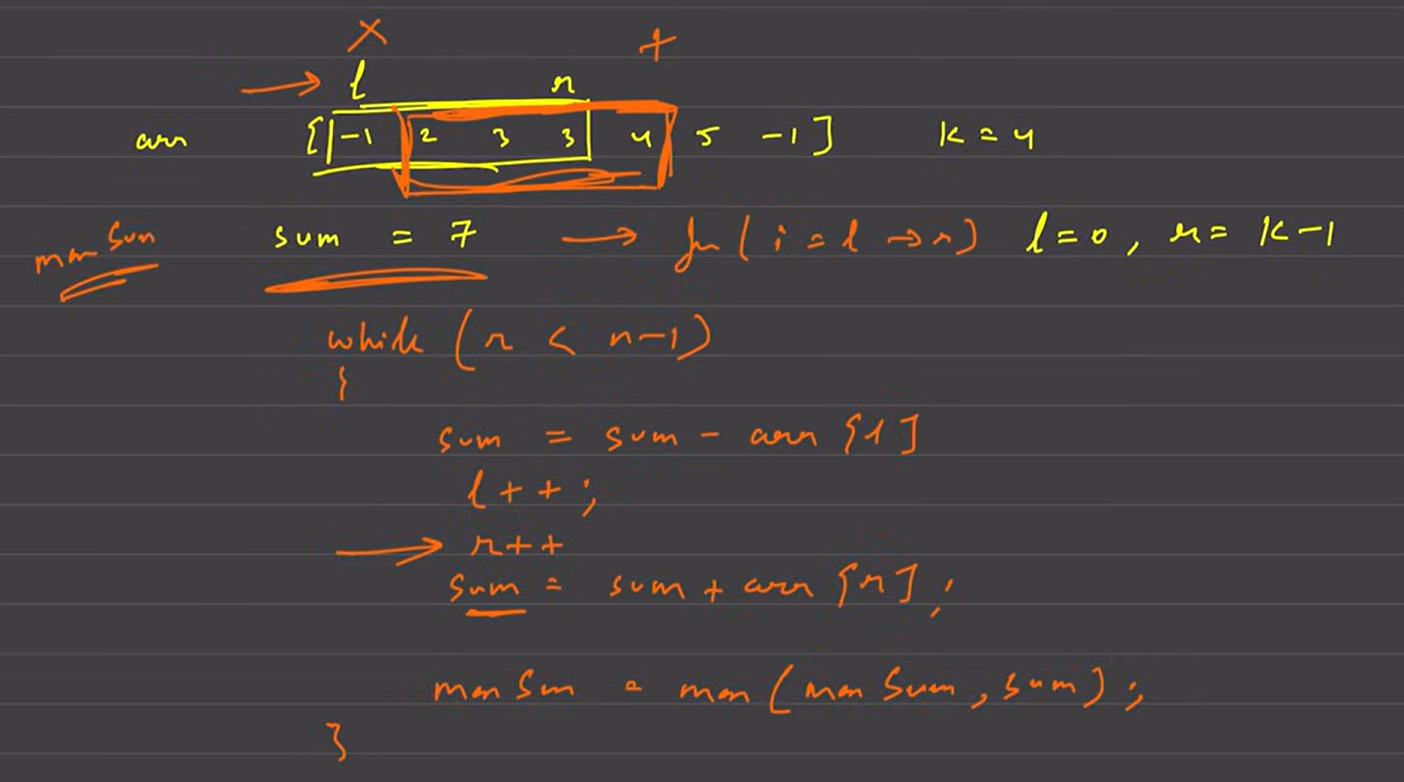 l r
arr [-1 2 3 3 4 5 -1] k = 4
maxSum sum = 7 → for (i = l → r) l = 0, r = k-1
while (r < n-1)
{
sum = sum - arr [l]
l++;
→ r++
sum = sum + arr [r];
maxSum = max (maxSum, sum);
}